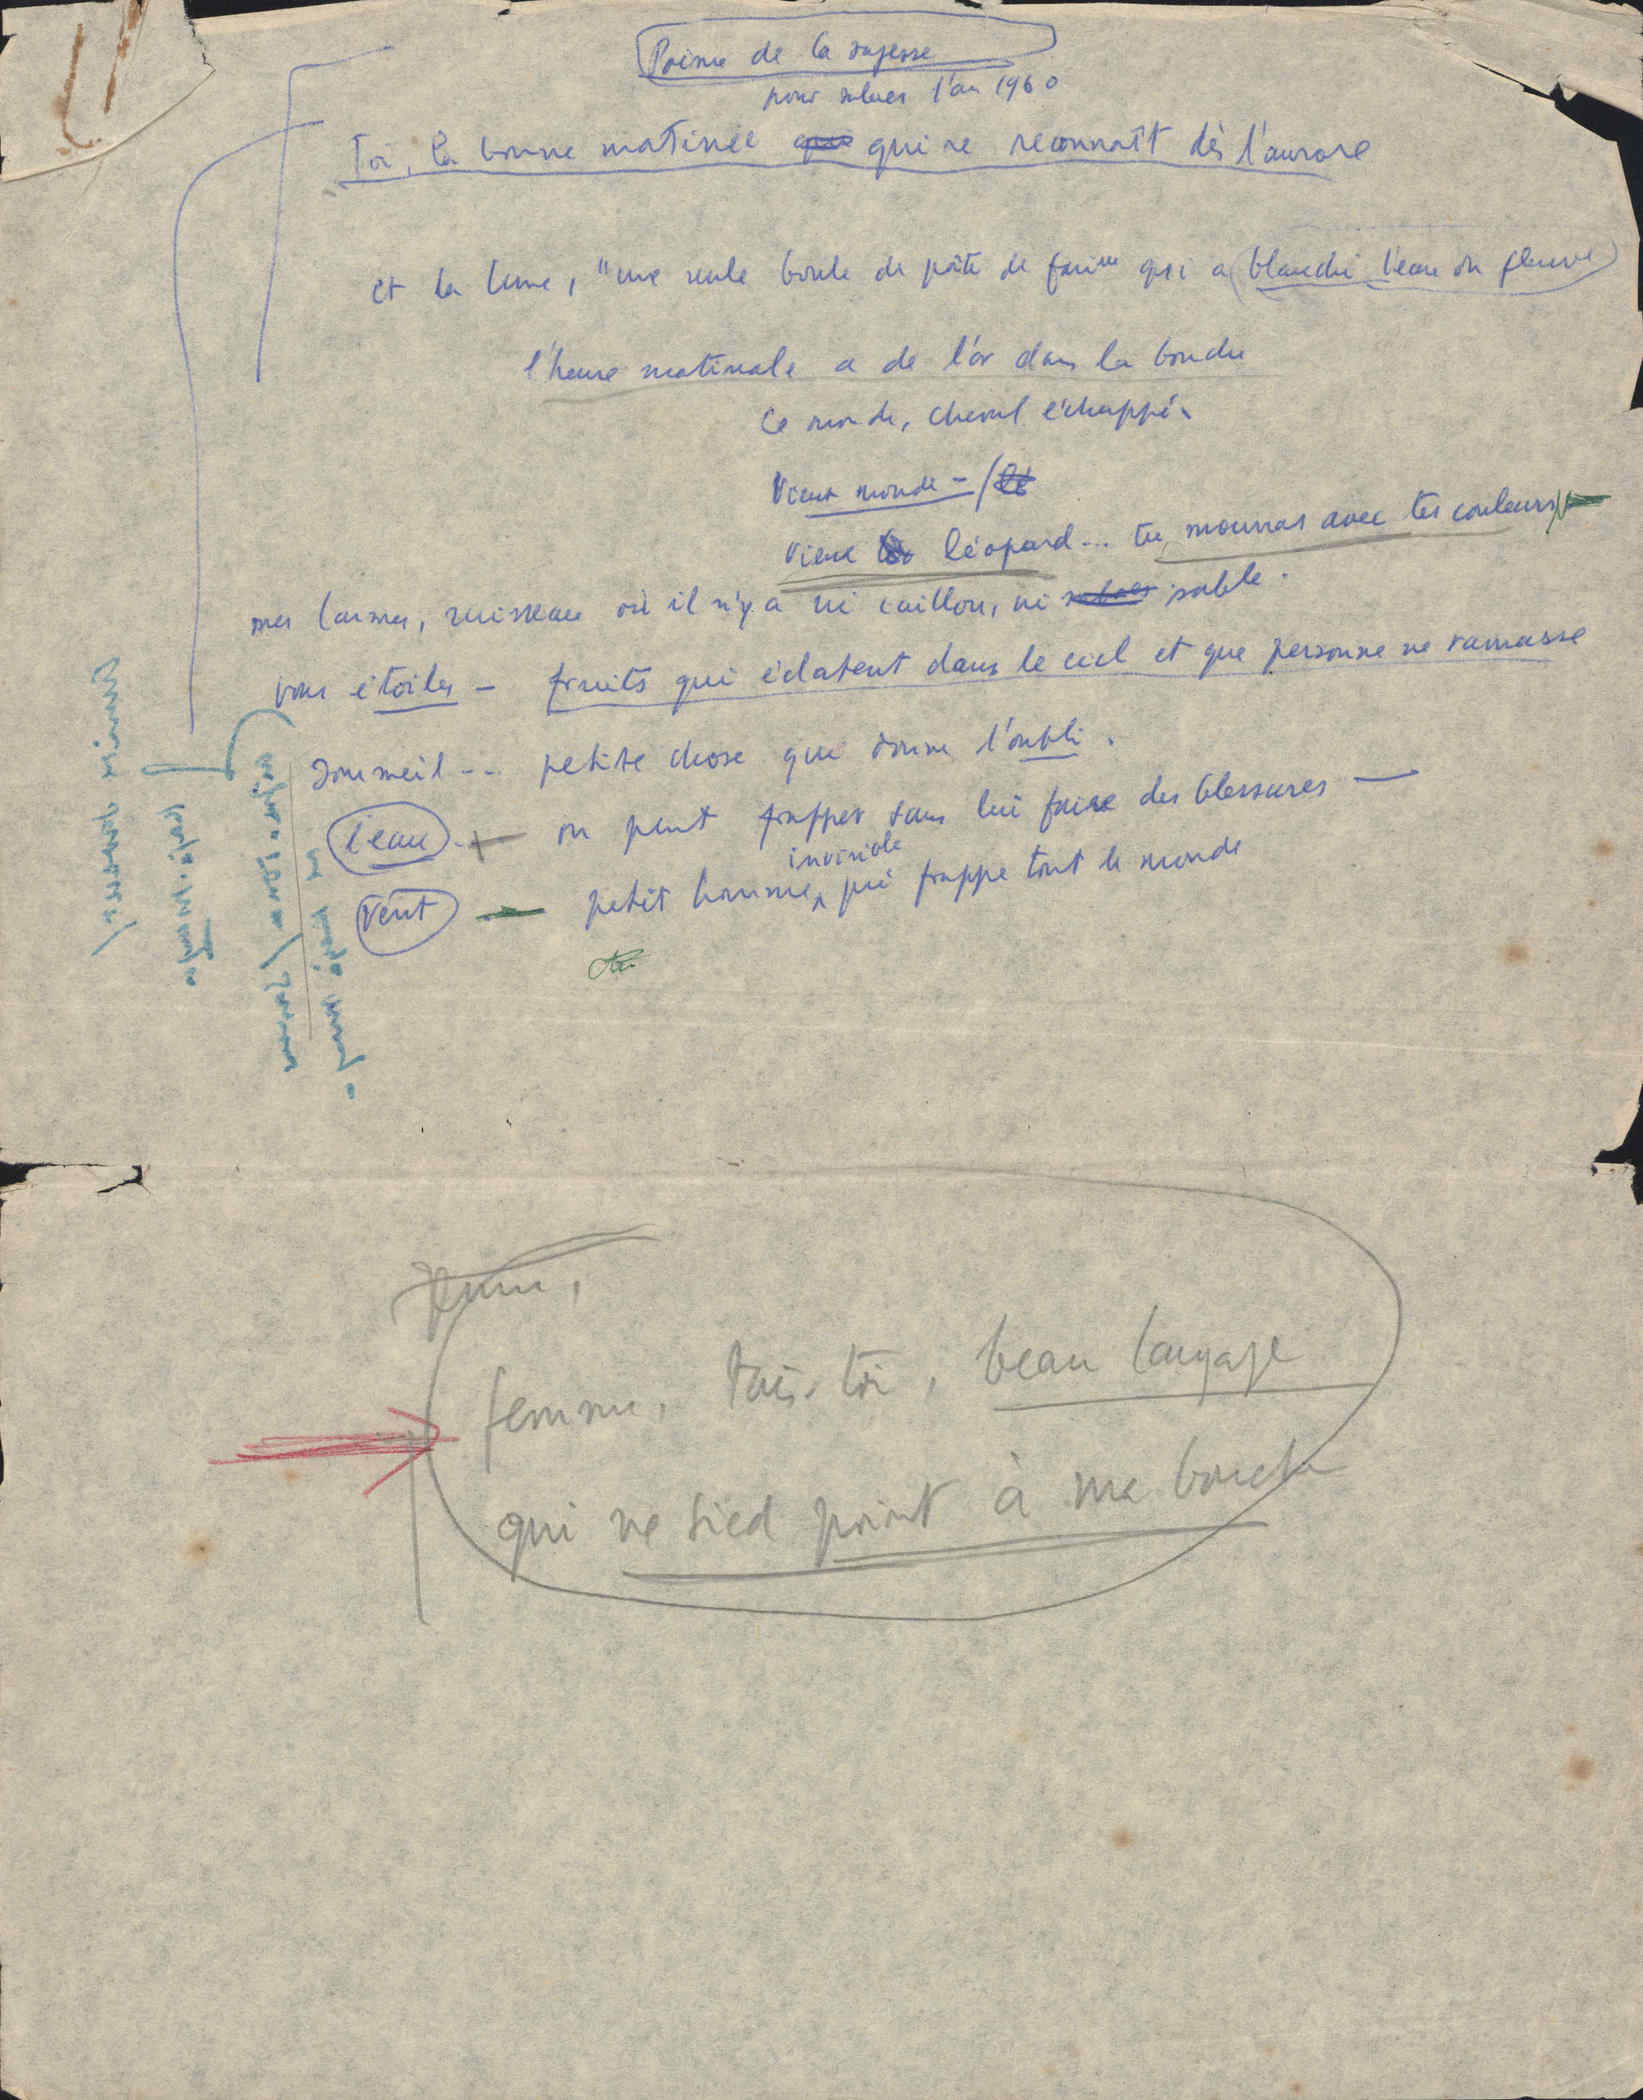 Poème de la sagesse
pour saluer l'an 1960
Toi, la bonne matinée que qui se reconnaît dès l'aurore
et la lune, "une seule boule de pâte de farine qui a blanchi l'eau du fleuve
l'heure matinale a de l'or dans la bouche
Ce monde, cheval échappé.
Vieux monde - / lé
Vieux léopard... tu mourras avec tes couleurs
mes larmes, ruisseau où il n'y a ni caillou, ni sable.
vous étoiles - fruits qui éclatent dans le ciel et que personne ne ramasse
sommeil... petite chose qui donne l'oubli.
l'eau - on peut frapper sans lui faire des blessures -
invisible
vent - petit homme, qui frappe tout le monde
femme,
femme, tais-toi, beau langage
qui ne sied point à ma bouche